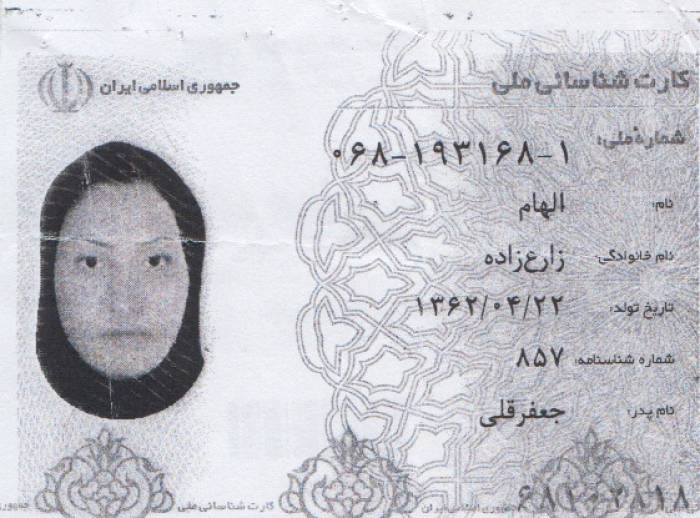 کارت شناسائی ملی
جمهوری اسلامی ایران
شماره ملی: ۰۶۸-۱۹۳۱۶۸-۱
نام: الهام
نام خانوادگی: زارع‌زاده
تاریخ تولد: ۱۳۶۲/۰۴/۲۲
شماره شناسنامه: ۸۵۷
نام پدر: جعفرقلی
جمهوری اسلامی ایران کارت شناسائی ملی جمهوری